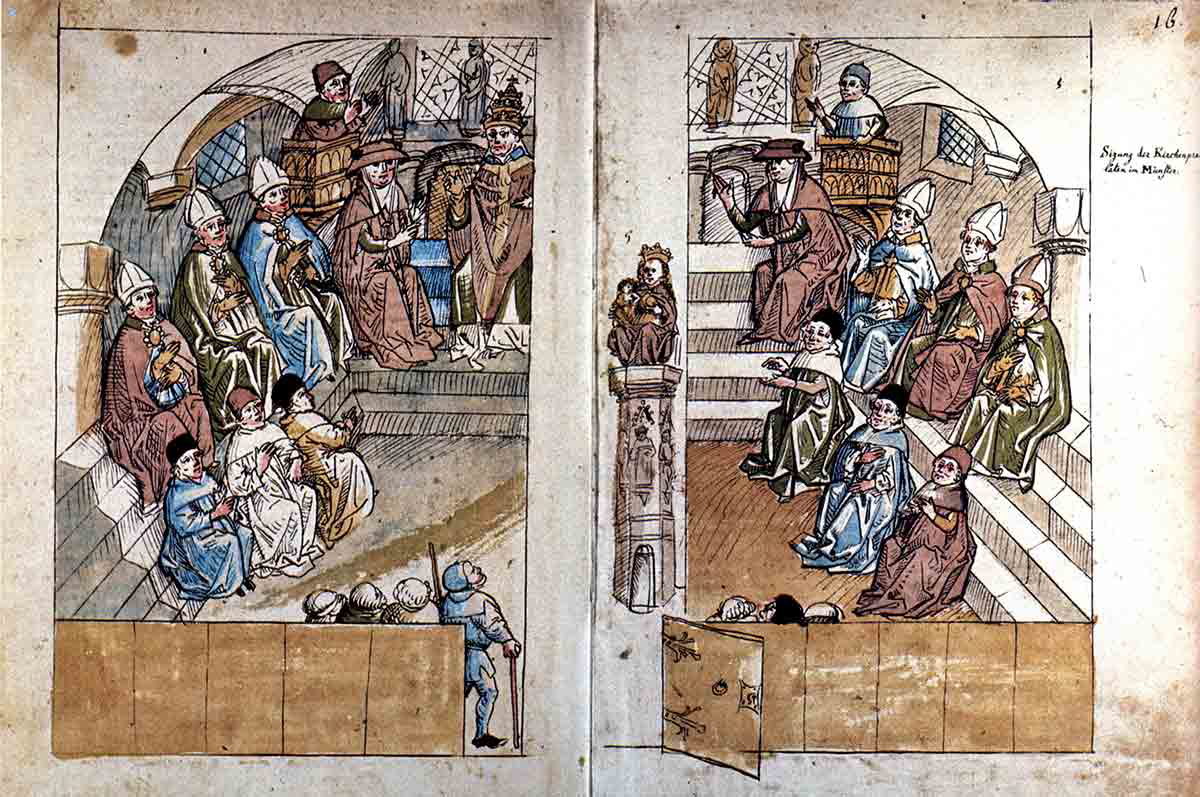 16.
Sizung der Kirchenpre-
läten im Münster.